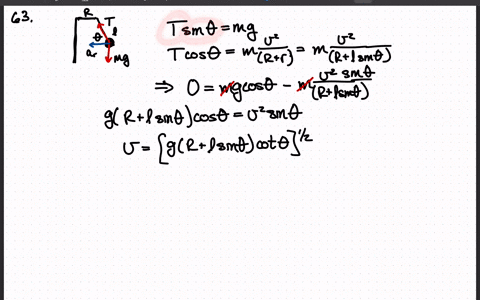 63.
R T
θ l
ar
mg
T sinθ = mg
T cosθ = m v²/(R+r) = m v²/(R+l sinθ)
⇒ 0 = mg cosθ - m v² sinθ/(R+l sinθ)
g(R+l sinθ) cosθ = v² sinθ
v = [g(R+l sinθ) cotθ]^1/2